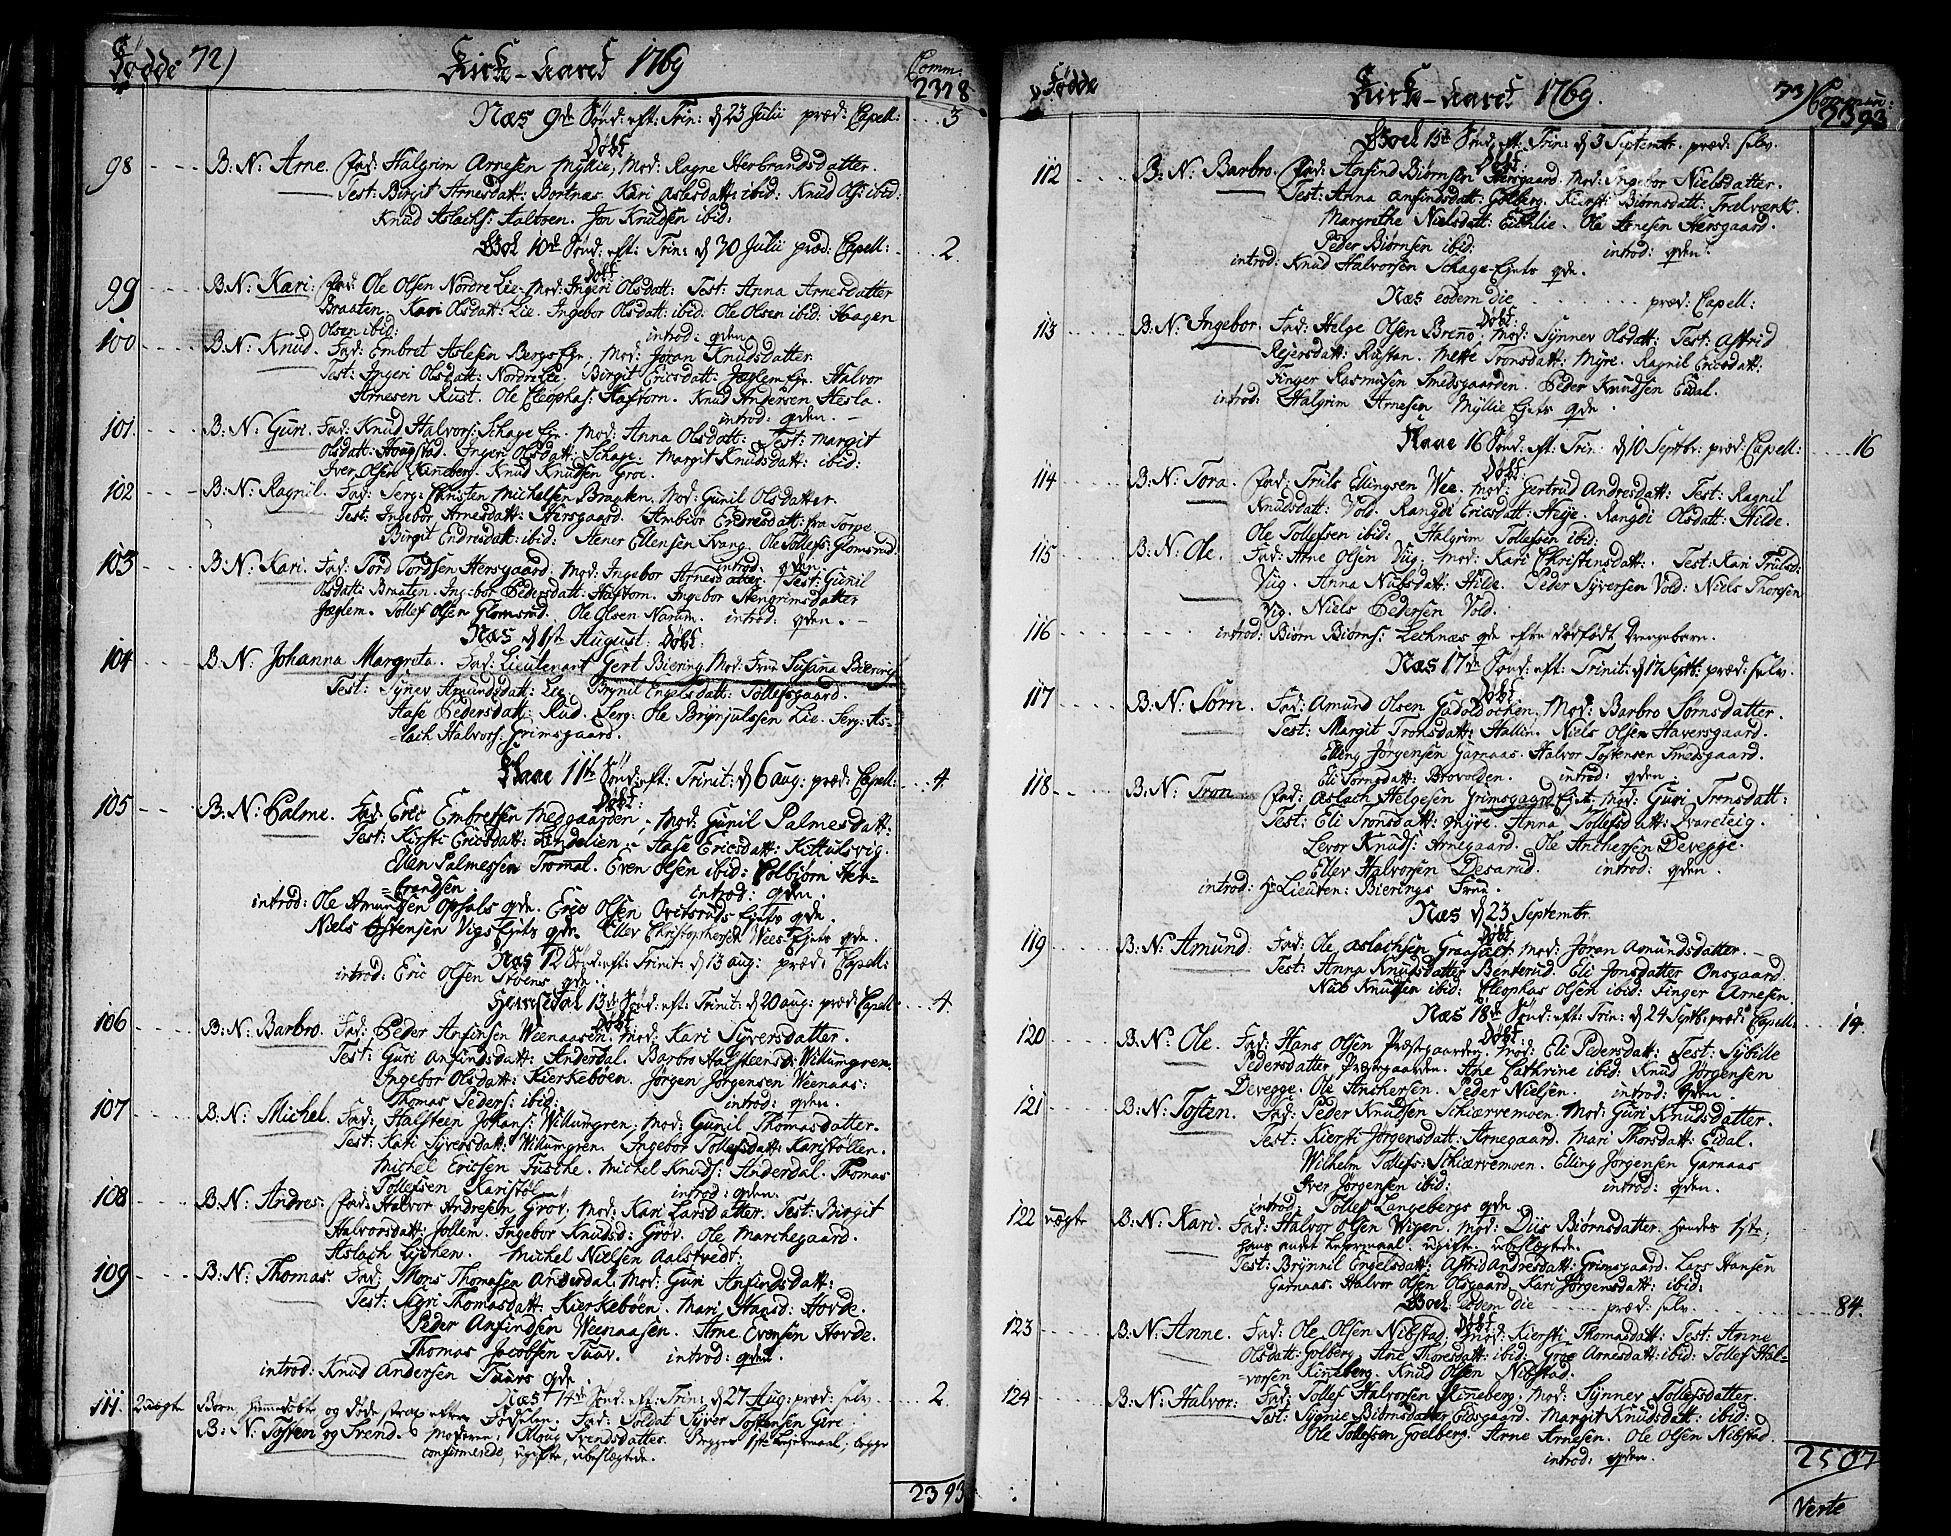 Fødde 72) Kirke-Aaret 1769 Comm.
2378
Næs 9de Sønd: eft: Trin: d 23 Julii præd: Capell: 3
Døbt
98 B: N: Arne. Fad: Halgrim Arnesen Myllie, Mod: Ragne Herbrandsdatter.
Test: Birgit Arnesdatt: Bortnæs. Kari Aslesdatt: ibid: Knud Ols: ibid:
Knud Aslachs: Aaltoen. Jon Knudsen ibid:
Goel 10de Sønd: eft: Trin: d 30 Julii præd: Capell: 2.
Døbt
99 B: N: Kari: Fad: Ole Olsen Nordre Lie. Mod: Ingeri Olsdatt: Test: Anna Arnesdatter
Braaten. Kari Olsdatt: Lie. Ingebor Olsdatt: ibid: Ole Olsen ibid: Haagen
Olsen ibid: introd: qden.
100 B: N: Knud. Fad: Embret Aslesen Bergs Eje. Mod: Joran Knudsdatter
Test: Ingeri Olsdatt: Nordre Lie. Birgit Ericsdatt: Jeglem Eje. Halvor
Arnesen Rust. Ole Cleophas: Haftorn. Knud Andersen Hesla.
introd: qden.
101 B: N: Guri. Fad: Knud Halvors: Schage Eje. Mod: Anna Olsdatt: Test: Margit
Olsdatt: Hougstad. Ingeri Olsdatt: Schage. Margit Knudsdatt: ibid:
Iver Olsen Kineberg. Knud Knudsen Groe.
102 B: N: Ragnil. Fad: Serg: Christen Michelsen Braaten. Mod: Gunil Olsdatter
Test: Ingebor Arnesdatt: Hersgaard. Ambiør Endresdatt: fra Torpe
Birgit Endresdatt: ibid: Stener Ellensen Svang. Ole Tollefs: Glomsrud.
introd: qden.
103 B: N: Kari. Fad: Tord Tordsen Hersgaard. Mod: Ingebor Arnesdatter. Test: Gunil
Olsdatt: Braaten. Ingebor Pedersdatt: Haftorn. Ingebor Stengrimsdatter
Jeglem. Tollef Olsen Glomsrud. Ole Olsen Narum. introd: qden.
Næs d 1st August: Døbt:
104 B: N: Johanna Margreta. Fad: Lieutenant Gert Biering. Mod: Frue Susana Bierings
Test: Synev Amundsdatt: Lie. Brynil Engelsdatt: Tollefsgaard.
Aase Pedersdatt: Rud. Serg: Ole Brynjulssen Lie. Serg: As-
=lach Halvors: Grimsgaard.
Flaae 11te Sønd: eft: Trinit: d 6 aug: præd: Capell: 4.
Døbt:
105 B: N: Palme. Fad: Eric Embretsen Medgaarden. Mod: Gunil Palmesdatt:
Test: Kirsti Ericsdatt: Lindelien. Aase Ericsdatt: Kittulsvig.
Ellen Palmessen Tromal. Even Olsen ibid: Colbiørn Her=
=brandsen. introd: qden.
introd: Ole Amundsen Opsals qde. Eric Olsen Qvitsruds Ejets qde.
Niels Østensen Vigs Ejets qde. Ellev Christophersen Wees Ejets qde.
Næs 12 Sønd: eft: Trinit: d 13 aug: præd: Capell:
introd: Eric Olsen Støens qde.
Hemsedal 13de Sønd: eft: Trinit: d 20 aug: præd: Capell: 4
Døbt
106 B: N: Barbro. Fad: Peder Anfinsen Weenaasen. Mod: Kari Syversdatter.
Test: Guri Anfindsdatt: Anderdal. Barbro Halsteensd: Willumgren.
Ingebor Olsdatt: Kierkebøen. Jørgen Jørgensen Weenaas:
Thomas Peders: ibid: introd: qden.
107 B: N: Michel. Fad: Halsteen Johans: Willumgren. Mod: Gunil Thomasdatter.
Test: Kari Syversdatt: Willumgren. Ingebor Tollefsdatt: Karistøllen.
Michel Ericsen Fusche. Michel Knuds: Anderdal. Thomas
Tollefsen Karistøl introd: qden.
108 B: N: Andres. Fad: Halvor Andresen Grøv, Mod: Kari Larsdatter. Test: Birgit
Halvorsdatt: Jollem. Ingebor Knudsd: Grøv. Ole Marchegaard.
Aslach Lychen. Michel Nielsen Aalstvedt.
109 B: N: Thomas. Fad: Mons Thomasen Anderdal. Mod: Guri Anfindsdatt:
Test: Sigri Thomasdatt: Kierkebøen. Mari Hansd: Hovde.
Peder Anfindsen Weenaasen. Arne Evensen Hovde.
Thomas Jacobsen Tuuv. introd: qden.
introd: Knud Andersen Tuuvs qde.
Næs 14de Sønd: eft: Trin: d 27 Aug: præd: selv. 2.
111 2 uægte Børn, hiemmedøbte, og døde strax efter Fødselen. Fad: Soldat Syver Tostensen Gire.
B: N: Tosten og Svend. Moderen: Olloug Svendsdatter. Begges 1ste Leiermaal; begge
confirmerede, ugifte, ubeslægtede.
2393
Fødde Kirke-Aaret 1769. 73) Commun:
2393
Goel 15de Sønd: eft: Trin: d 3 Septembr. præd: selv.
Døbt
112 B: N: Barbro. Fad: Anfind Biørnsen Hersgaard. Mod: Ingebor Nielsdatter.
Test: Anna Anfindsdatt: Golberg. Kiersti Biørnsdatt: Trælværk.
Margrethe Nielsdatt: Eichlie. Ole Arnesen Hersgaard.
Peder Biørnsen ibid: introd: qden.
introd: Knud Halvorsen Schage Ejets qde.
Næs eodem die præd: Capell:
Døbt
113 B: N: Ingebor. Fad: Helge Olsen Breno. Mod: Synnev Olsdatt: Test: Astrid
Rejersdatt: Rustan. Mette Tronsdatt: Myre. Ragnil Ericsdatt:
Finger Rasmusen Smedsgaarden. Peder Knudsen Eidal.
introd: Halgrim Arnesen Myllie Ejets qde.
Flaae 16 Sønd: eft: Trin: d 10 Septbr: præd: Capell: 16
Døbt:
114 B: N: Tora. Fad: Truls Ellingsen Wee. Mod: Gertrud Andresdatt: Test: Ragnil
Knudsdatt: Vold. Rangdi Ericsdatt: Heije. Rangdi Olsdatt: Hilde.
Ole Tollefsen ibid: Halgrim Tollefsen ibid:
115 B: N. Ole. Fad: Arne Olsen Vig. Mod: Kari Christensdatt: Test: Kari Trulsd:
Vig. Anna Nubsdatt: Hilde. Peder Syversen Vold: Niels Thoresen
Vig. Niels Pedersen Vold.
116 introd: Biørn Biørns: Lechnæs qde efter dødfødt Drengebarn.
Næs 17de Sønd: eft: Trinit: d 17 Septbr: præd: selv.
Døbt
117 B: N: Sørn. Fad: Amund Olsen Gadoldocken. Mod: Barbro Sørnsdatter.
Test: Margit Tronsdatt: Hallin. Niels Olsen Haversgaard.
Elling Jørgensen Garnaas. Halvor Tostensen Smedsgaard.
Eli Sørnsdatt: Brovolden. introd: qden
118 B: N: Tron. Fad: Aslach Helgesen Grimsgaard Ejet. Mod: Guri Tronsdatt:
Test: Eli Tronsdatt: Myre. Anna Tollefsdatt: Qvareteig.
Levor Knuds: Arnegaard. Ole Anchersen Devegge.
Ellev Halvorsen Desarud. introd: qden.
introd: Hr Lieuten: Bierings Frue.
Næs d 23 Septembr
Døbt
119 B: N: Amund: Fad: Ole Aslachsen Graasalt. Mod: Jøran Amundsdatter.
Test: Anna Knudsdatter Benterud. Eli Jonsdatter Onsgaard.
Nub Knudsen ibid: Cleophas Olsen ibid: Finger Arnesen.
Næs 18de Sønd: eft: Trin: d 24 Septb: præd: Capell: 14.
Døbt
120 B: N: Ole. Fad: Hans Olsen Præstegaarden. Mod: Eli Pedersdatt: Test: Sybille
Pedersdatter Præstegaarden. Ane Cathrine ibid: Knud Jørgensen
Devegge. Ole Anchersen. Peder Nielsen. introd: qden.
121 B: N: Tosten. Fad: Peder Knudsen Schiærvemoen. Mod: Guri Knudsdatter.
Test: Kiersti Jørgensdatt: Arnegaard. Mari Thorsdatt: Eidal.
Wilhelm Tollefs: Schiærvemoen. Elling Jørgensen Garnaas
Iver Jørgensen ibid: introd: qden.
introd: Tollef Langebergs qde
122 uægte B: N: Kari. Fad: Halvor Olsen Wigen. Mod: Diis Biørnsdatter. Hendes 1ste,
hans andet Leiermaal. ugifte, ubeslægtede.
Test: Brynnil Engelsdatt: Astrid Andresdatt: Grimsgaard. Lars Hansen
Garnaas. Halvor Olsen Olsgaard. Kari Jørgensdatt: ibid:
Goel eodem die præd: selv 84.
Døbt
123 B: N: Anne. Fad: Ole Olsen Nibstad. Mod: Kiersti Thomasdatt: Test: Anne
Olsdatt: Golberg. Ane Thoresdatt: ibid: Goroe Arnesdatt: ibid: Tollef Hal=
vorsen Kineberg. Knud Olsen Nibstad.
124 B: N: Halvor: Fad: Tollef Halvorsen Kineberg. Mod: Synnev Tollefsdatter.
Test: Sygnie Biørnsdatter Eidsgaard. Margit Knudsdatt: ibid:
Ole Tollefsen Goelberg. Arne Arnesen. Ole Olsen Nibstad
introd: qden.
2507
Verte